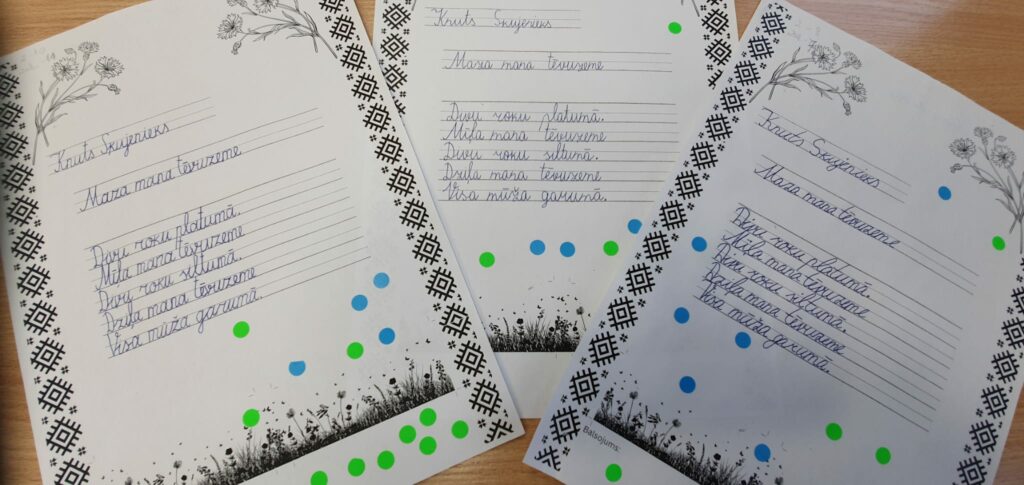 Knuts Skujenieks
Maza mana tēvuzeme
Divi roku platumā.
Mīļa mana tēvuzeme
Divi roku siltumā.
Dziļa mana tēvuzeme
Visa mūža garumā.
Knuts Skujenieks
Maza mana tēvuzeme
Divi roku platumā.
Mīļa mana tēvuzeme
Divi roku siltumā.
Dziļa mana tēvuzeme
Visa mūža garumā.
Knuts Skujenieks
Maza mana tēvuzeme
Divi roku platumā.
Mīļa mana tēvuzeme
Divi roku siltumā.
Dziļa mana tēvuzeme
Visa mūža garumā.
Balsojums: